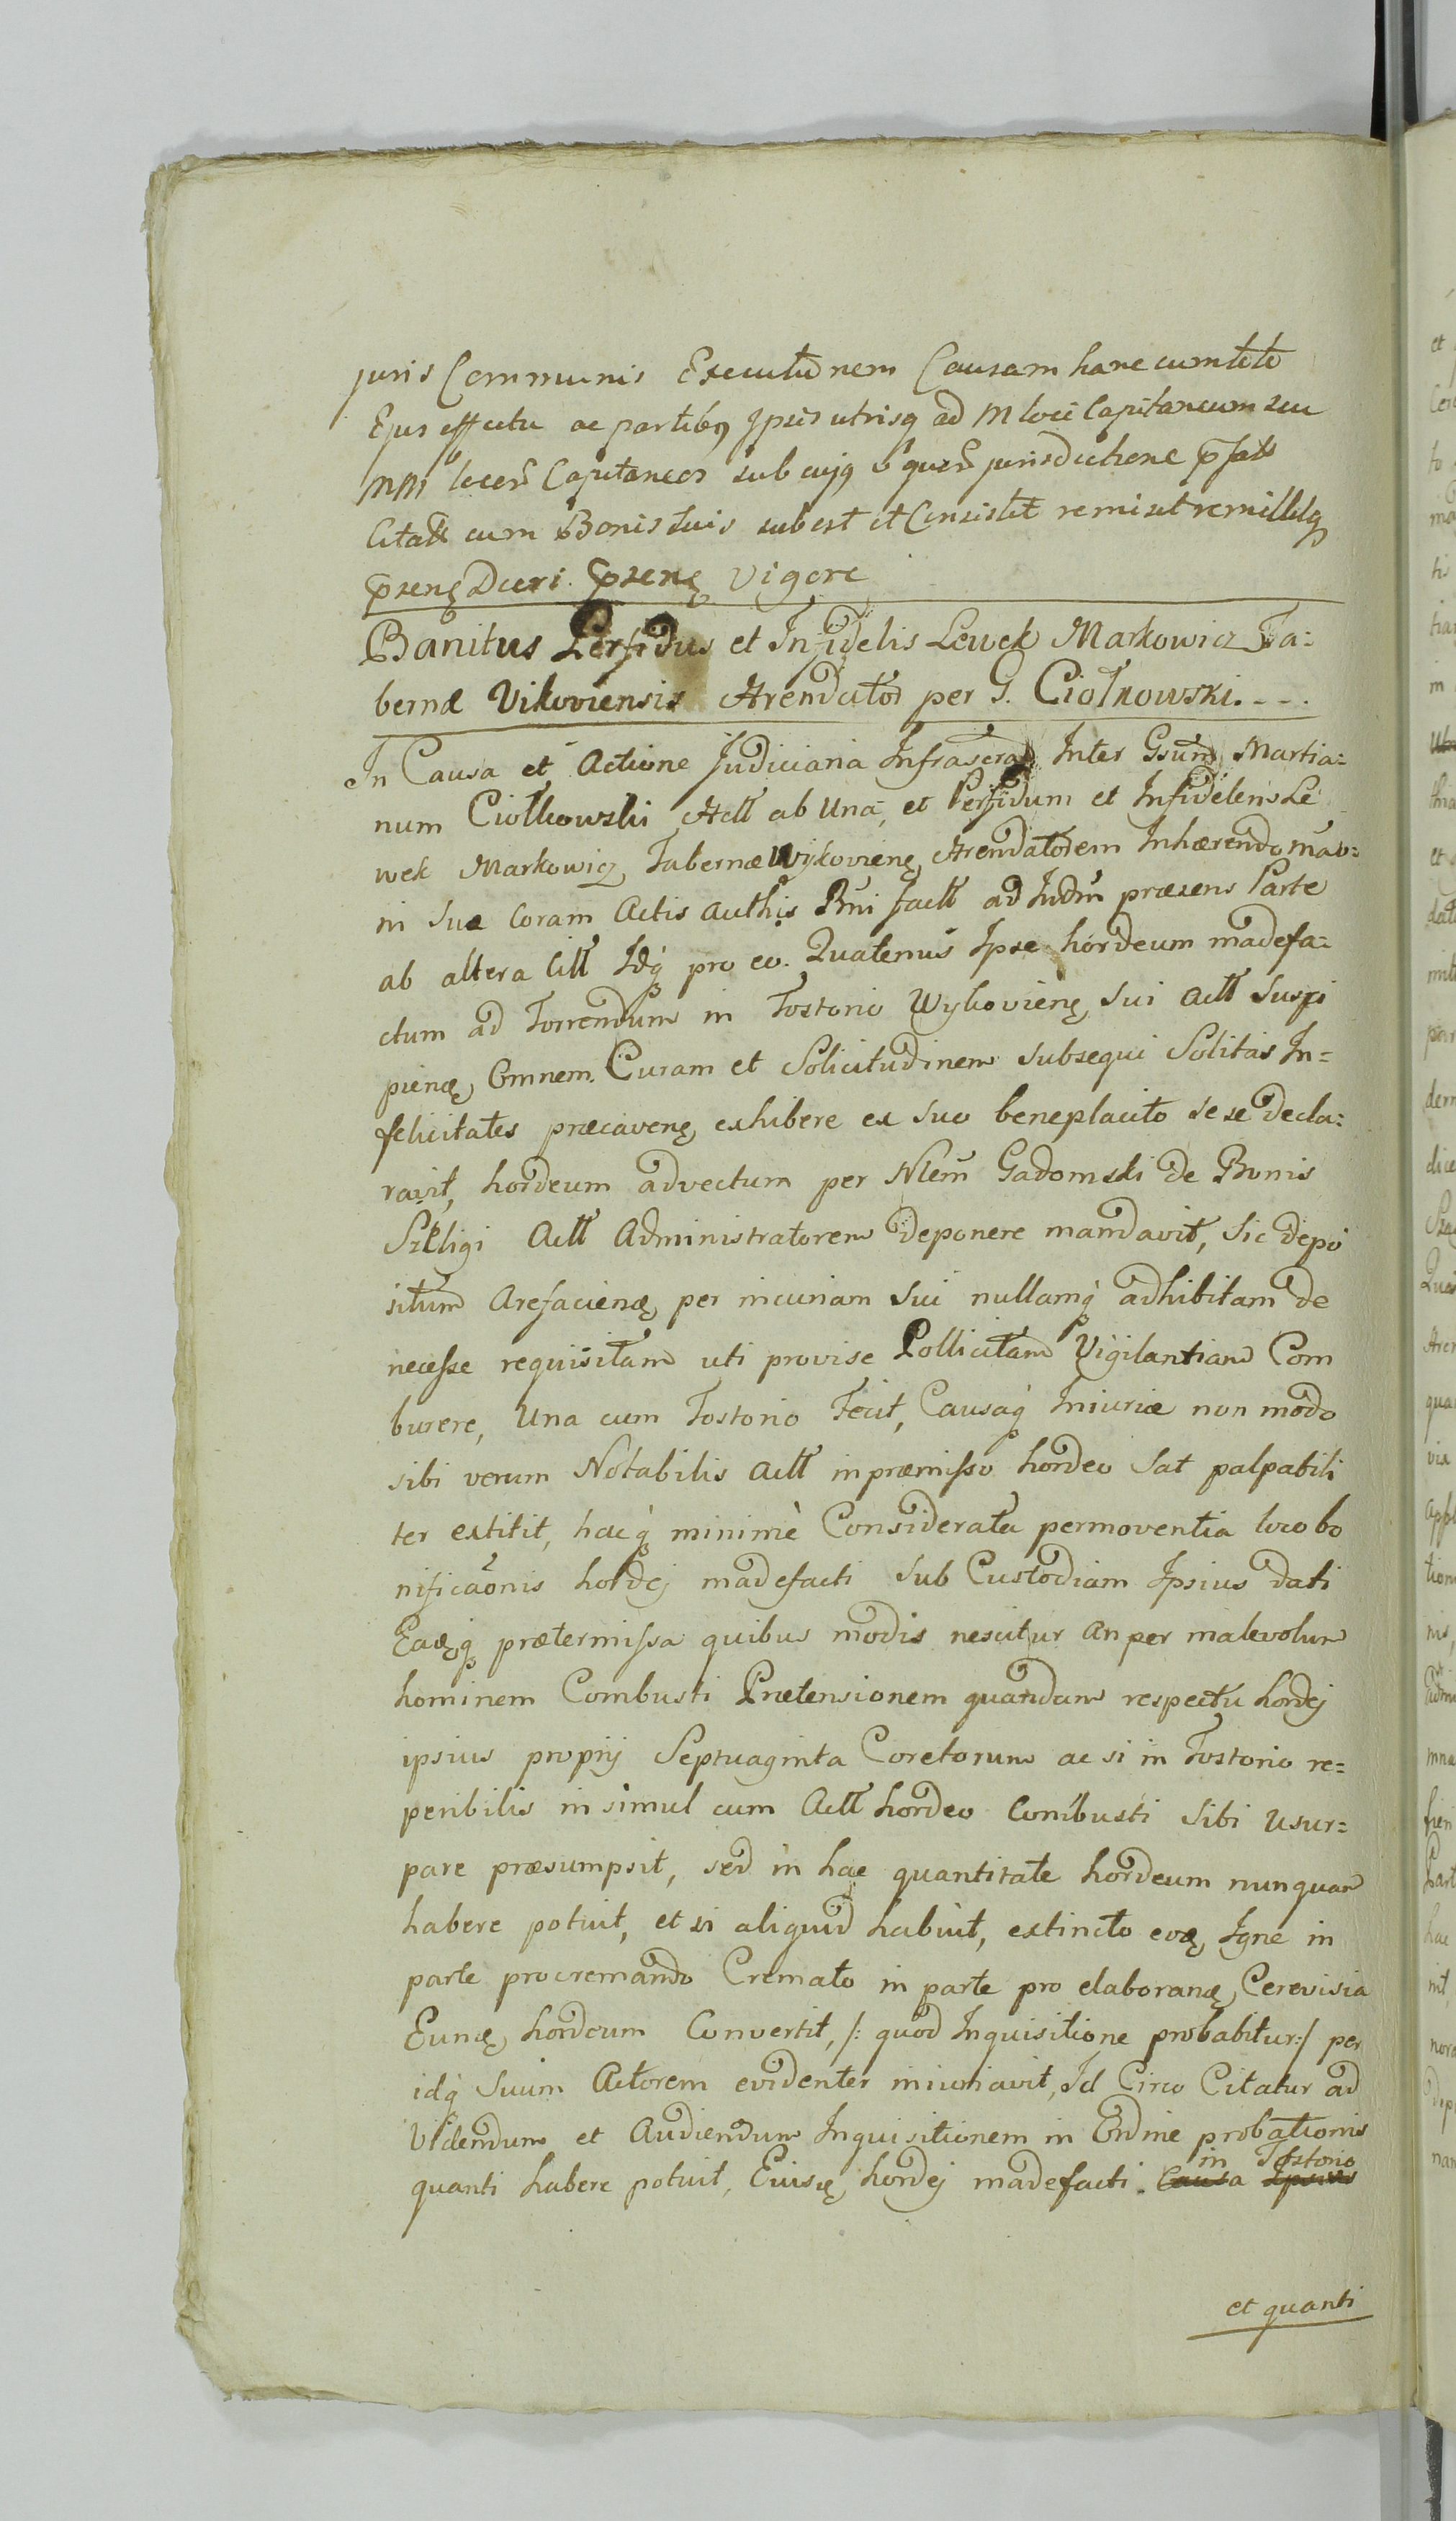 juris Communis Executionem Causam hanc cum toto
Ejus effectu ac partibq Ipsis utrisq ad M loci Capitaneum seu
MM locor Capitaneos sub cujq v quor jurisdictione pfatt
Citatt cum Bonis suis subest et Consistit remisit remittitq
psenę Dcri psenę vigore
Banitus Perfidus et Infidelis Lewek Markowicz Ta=
bernæ Vikoviensis Arendator per G. Ciołkowski. - - .
In Causa et Actione Judiciaria Infrascra Inter Gsum Martia=
num Ciołkowski Actt ab Una, et Perfidum et Infidelem Le
wek Markowicz Tabernæ Wykovienę Arendatorem Inhærendo
ni suæ Coram Actis Authis Bni factt ad Indm præsens Parte
ab altera Citt Idq pro eo. Quatenus Ipse hordeum madefa=
ctum ad Torrendum in Tostorio Wykovienę sui Actt Susci
pienę, Omnem Curam et Solicitudinem subsequi Solitas In=
felicitates præcavenę exhibere ex suo beneplacito sese decla=
ravit, hordeum advectum per Nlem Gadomski de Bonis
Szeligi Actt Administratorem deponere mandavit, sic depo
situm Arefacienę, per incuriam sui nullamq adhibitam de
necesse requisitam uti provise Pollicitam Vigilantiam Com
burere, Una cum Tostorio Fecit, Causaq Iniuriæ non modo
sibi verum Notabilis Actt in præmisso hordeo Sat palpabili
ter extitit, hacq minimè Considerata permoventia loco bo
nificaonis hordej madefacti sub Custodiam Ipsius dati
Eaęq prætermissa quibus modis nescitur an per malevolum
hominem Combusti Prætensionem quandam respectu hordej
ipsius proprij Septuaginta Coretorum ac si in Tostorio re=
peribilis in simul cum Actt hordeo Combusti sibi Usur=
pare præsumpsit, sed in hac quantitate hordeum nunquam
habere potuit, et si aliquid habuit, extincto eoę Igne in
parte pro cremando Cremato in parte pro elaboranę Cerevisia
Eunę hordeum Convertit, /: quod Inquisitione probabitur :/ per
idq Suum Actorem evidenter iniuriavit, Id Circo Citatur ad
Videndum et Audiendum Inquisitionem in Ordine probationis
quanti habere potuit, Eiusę hordej madefacti. Causa Ipsius in Tostorio
et quanti